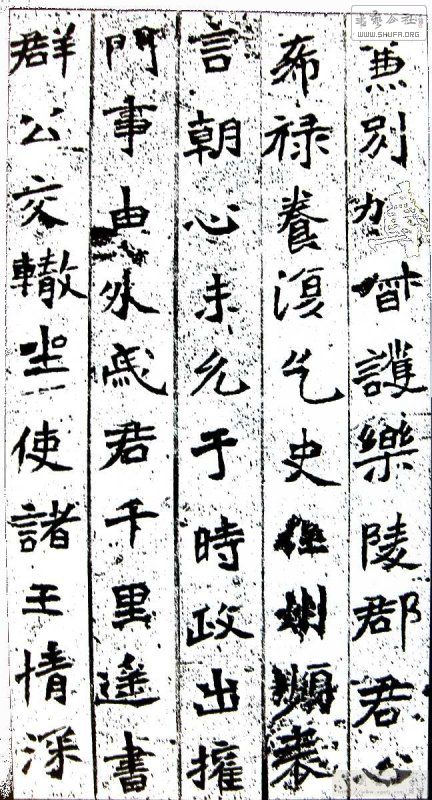 兼別力督護樂陵郡君公
希祿養復乞史任州頻表
言朝心未允于時政出擁
門事由外戚君千里遥書
群公交轍坐使諸王情深
WWW.SHUFA.ORG